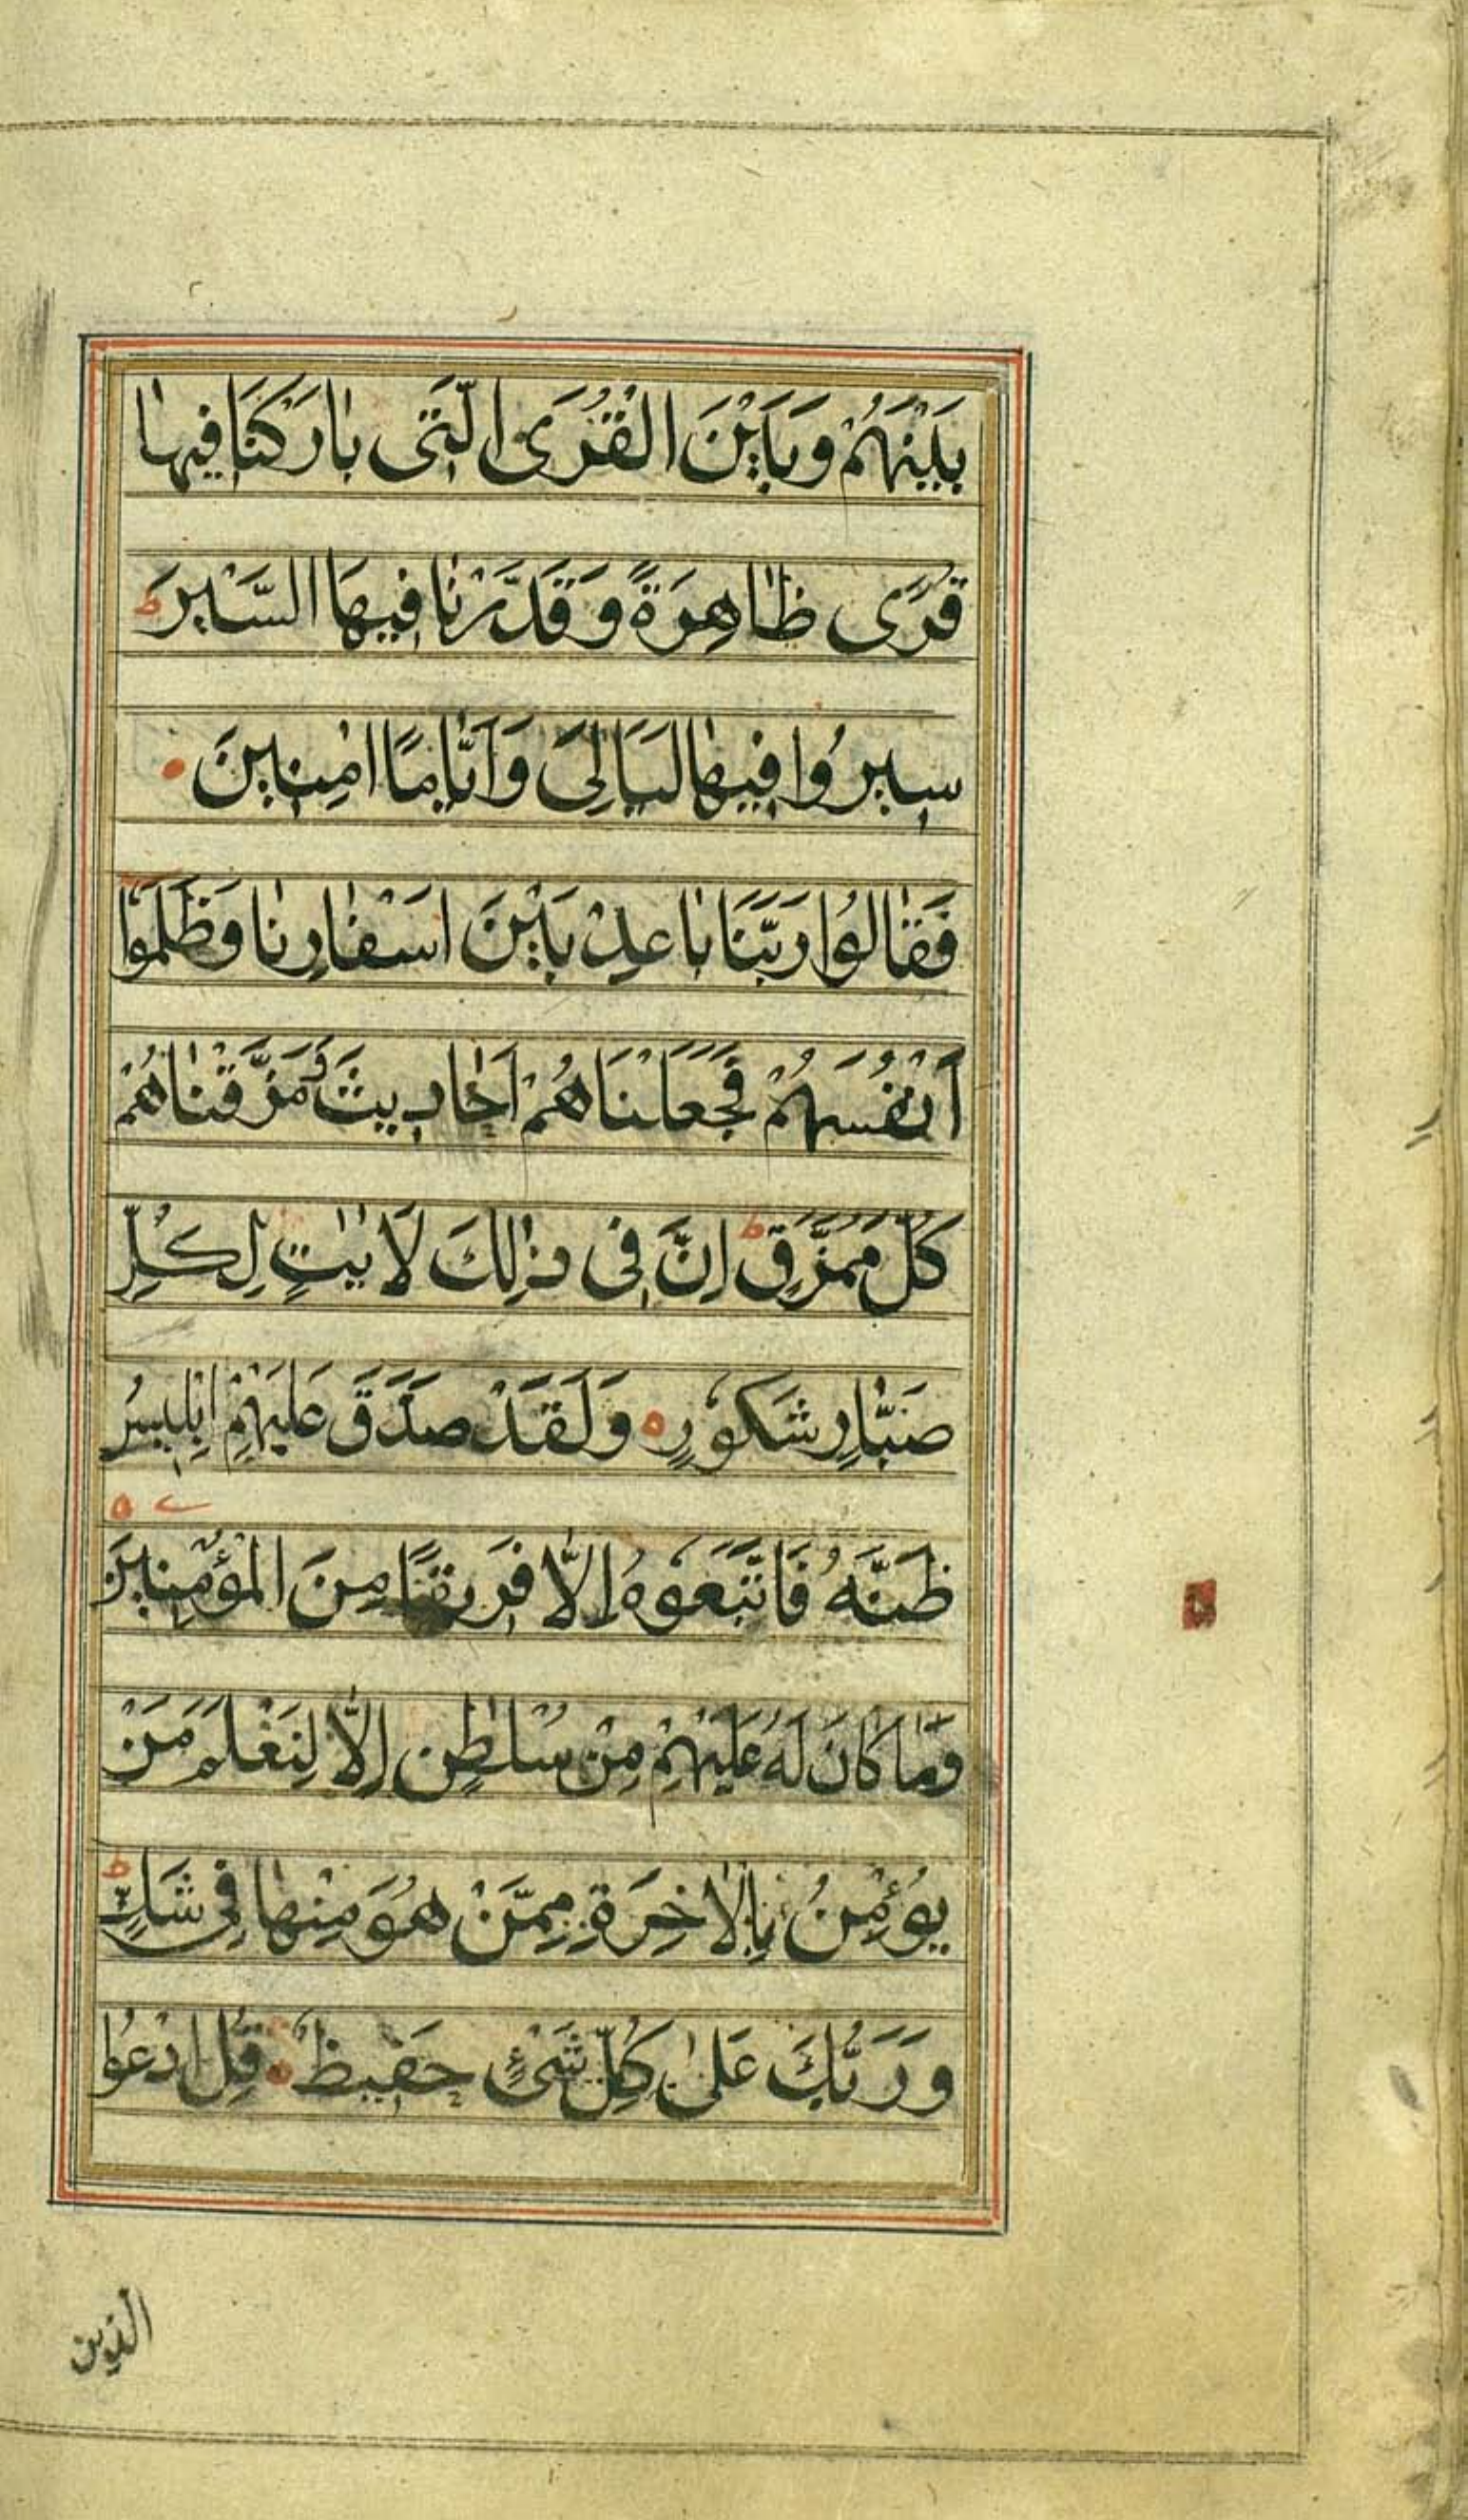 بَيْنَهُمْ وَبَيْنَ الْقُرَى الَّتِى بٰارَكْنَا فِيهٰا
قُرًى ظٰاهِرَةً وَقَدَّرْنٰا فِيهَا السَّيْرَ ط
سِيرُوا فِيهٰا لَيَالِىَ وَاَيّٰامًا اٰمِنِينَ
فَقٰالُوا رَبَّنَا بٰاعِدْ بَيْنَ اَسْفٰارِنٰا وَظَلَمُوٓا
اَنْفُسَهُمْ فَجَعَلْنَاهُمْ اَحٰادِيثَ وَمَزَّقْنٰاهُمْ
كُلَّ مُمَزَّقٍ ط اِنَّ فِى ذٰلِكَ لَاٰيٰتٍ لِكُلِّ
صَبّٰارٍ شَكُورٍ ٥ وَلَقَدْ صَدَّقَ عَلَيْهِمْ اِبْلِيسُ
ظَنَّهُ فَاتَّبَعُوهُ اِلّٰا فَرِيقًا مِنَ الْمُؤْمِنِينَ ٥
وَمٰا كٰانَ لَهُ عَلَيْهِمْ مِنْ سُلْطٰنٍ اِلّٰا لِنَعْلَمَ مَنْ
يُؤْمِنُ بِالْاٰخِرَةِ مِمَّنْ هُوَ مِنْهٰا فِى شَكٍّ ط
وَرَبُّكَ عَلىٰ كُلِّ شَىْءٍ حَفِيظٌ قُلِ ادْعُوا
الذين